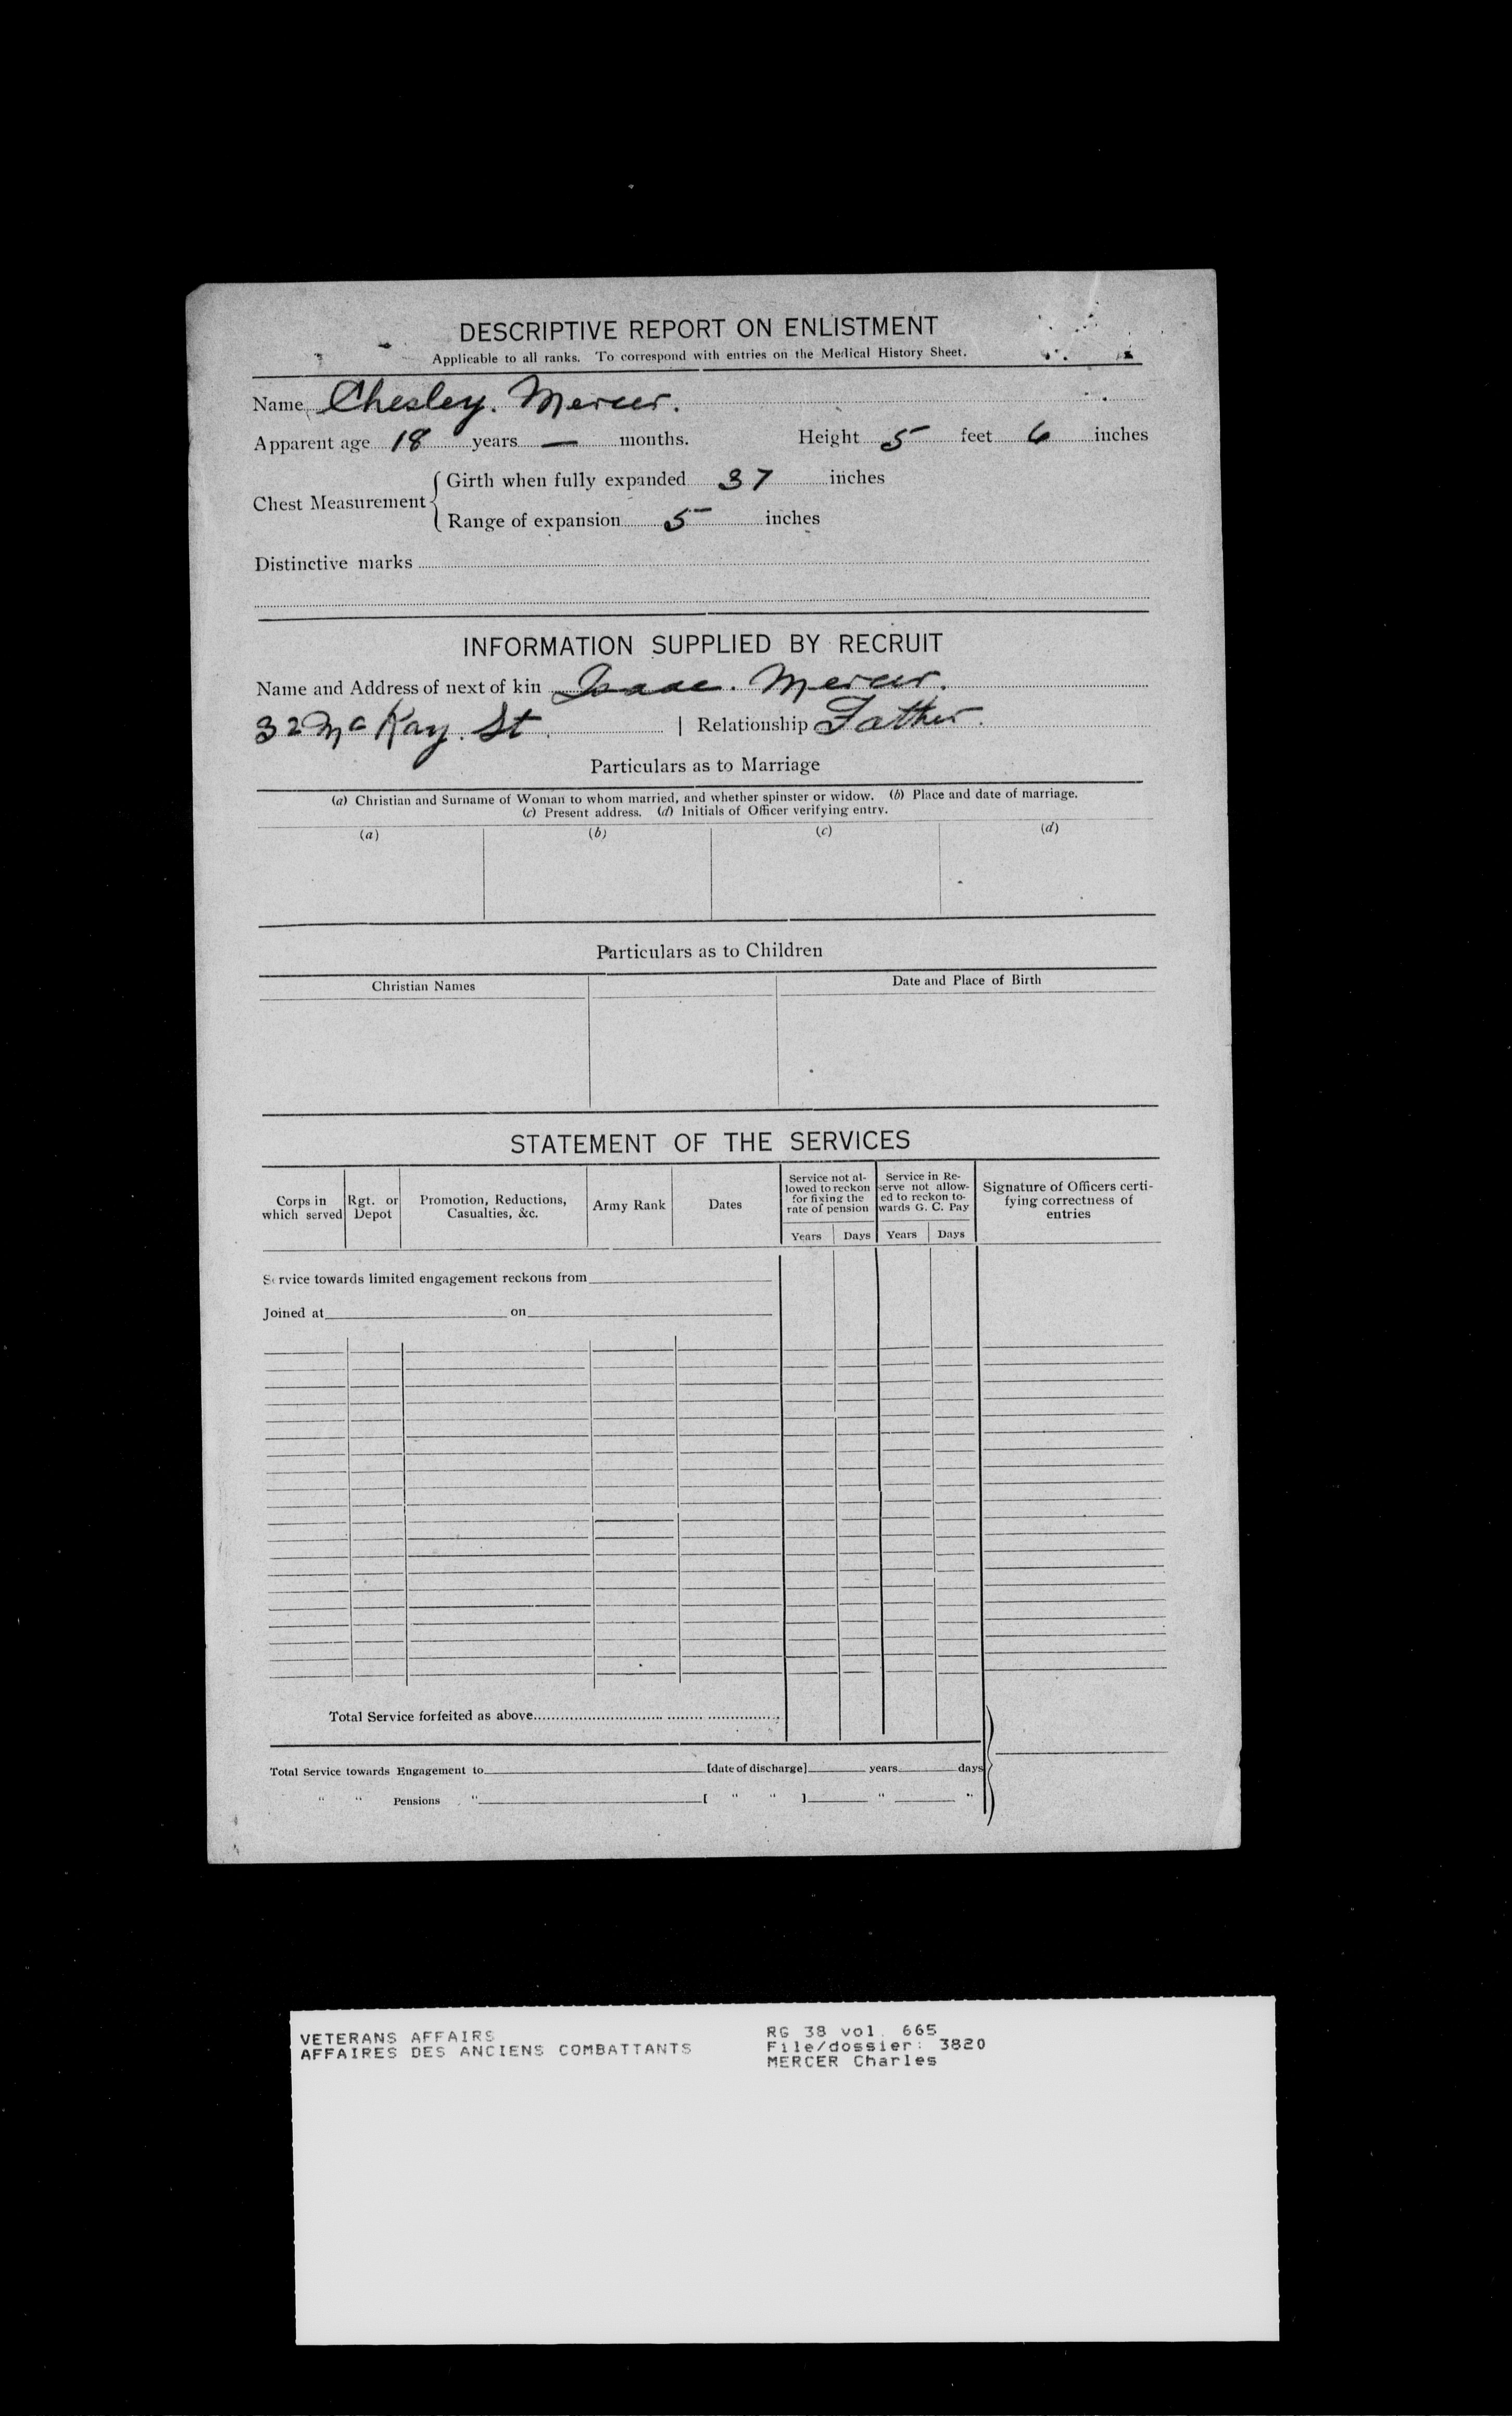 DESCRIPTIVE REPORT ON ENLISTMENT
Applicable to all ranks. To correspond with entries on the Medical History Sheet.
Name Chesley. Mercer.
Apparent age 18 years — months. Height 5 feet 6 inches
Chest Measurement { Girth when fully expanded 37 inches
Range of expansion 5 inches
Distinctive marks
INFORMATION SUPPLIED BY RECRUIT
Name and Address of next of kin Isaac. Mercer.
32 Mc Kay. St. | Relationship Father.
Particulars as to Marriage
(a) Christian and Surname of Woman to whom married, and whether spinster or widow. (b) Place and date of marriage.
(c) Present address. (d) Initials of Officer verifying entry.
(a) (b) (c) (d)
Particulars as to Children
Christian Names Date and Place of Birth
STATEMENT OF THE SERVICES
Corps in which served
Rgt. or Depot
Promotion, Reductions, Casualties, &c.
Army Rank
Dates
Service not al-
lowed to reckon
for fixing the
rate of pension
Service in Re-
serve not allow-
ed to reckon to-
wards G. C. Pay
Signature of Officers certi-
fying correctness of
entries
Years Days Years Days
Service towards limited engagement reckons from
Joined at on
Total Service forfeited as above
Total Service towards Engagement to [date of discharge] years days
" " Pensions " [ " " ] " "
VETERANS AFFAIRS
AFFAIRES DES ANCIENS COMBATTANTS
RG 38 vol. 665
File/dossier: 3820
MERCER Charles